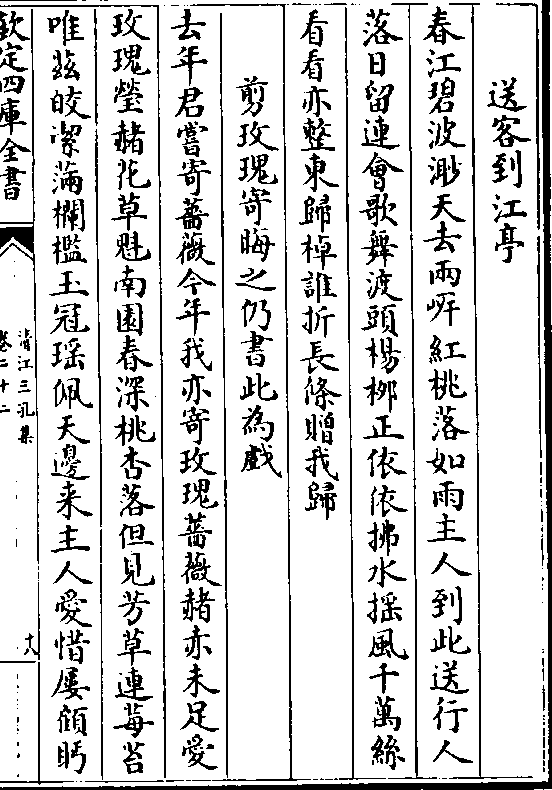 送客到江亭
春江碧波渺天去兩岸紅桃落如雨主人到此送行人
落日留連會歌舞渡頭楊栁正依依拂水揺風千萬絲
看看亦整東歸棹誰折長條贈我歸
剪玫瑰寄晦之仍書此為戱
去年君嘗寄薔薇今年我亦寄玫瑰薔薇赭亦未足愛
玫瑰瑩赭花草魁南園春深桃杏落但見芳草連莓苔
唯兹皎潔滿欄檻玉冠瑶佩天邊来主人愛惜屢傾眄
欽定四庫全書
清江三孔集
卷二十二
十八